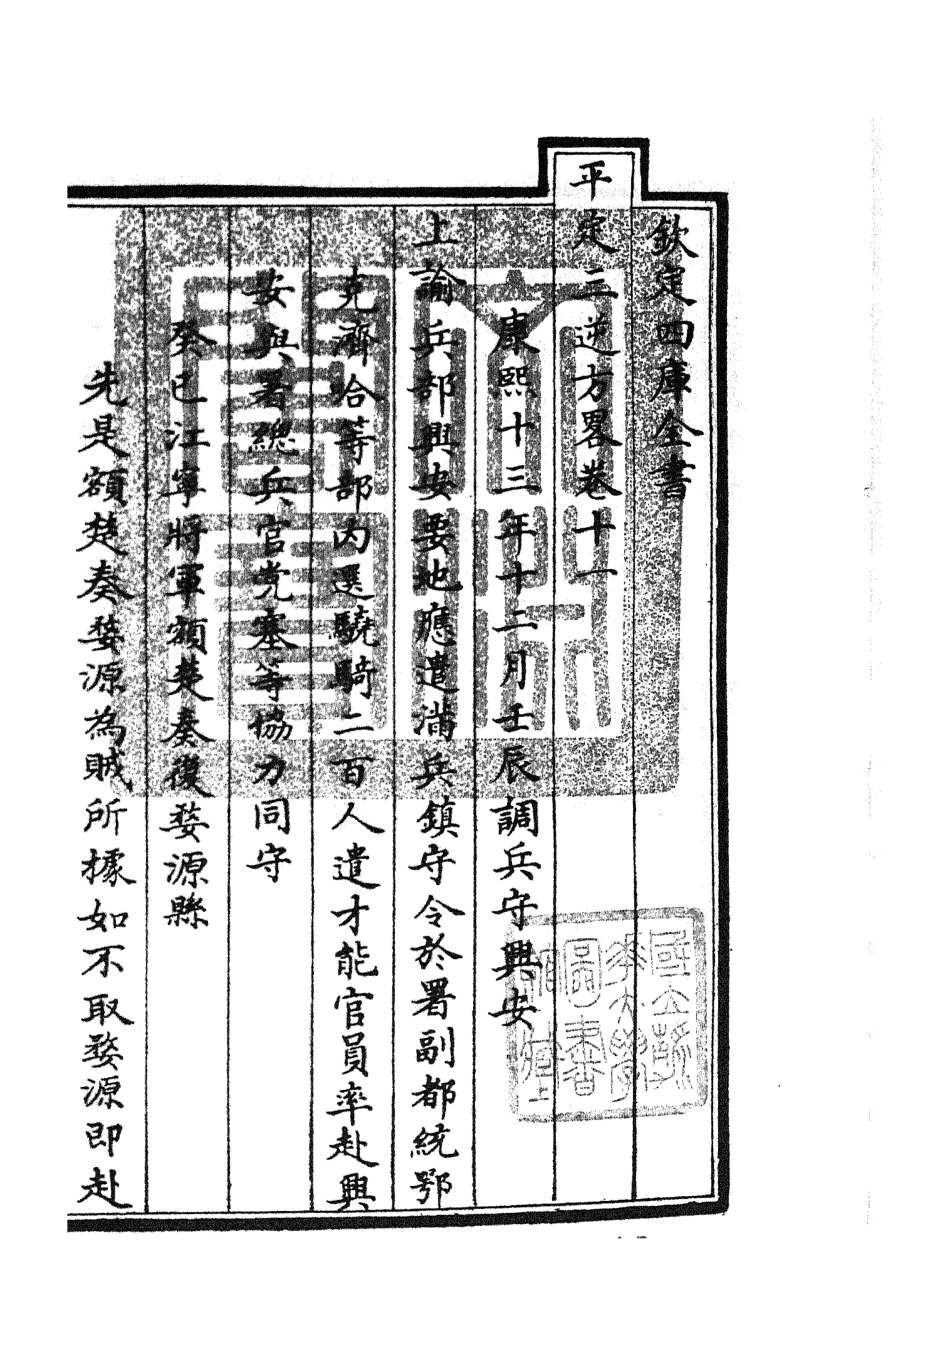 欽定四庫全書
平定三逆方畧卷十一
康熙十三年十二月壬辰調兵守興安
上諭兵部興安要地應遣滿兵鎮守令於署副都統鄂
克濟哈等部內選驍騎二百人遣才能官員率赴興
安與署總兵官党塞等協力同守
癸巳江寧將軍額楚奏復婺源縣
先是額楚奏婺源為賊所據如不取婺源即赴
國立浙
江大學
圖書
館藏